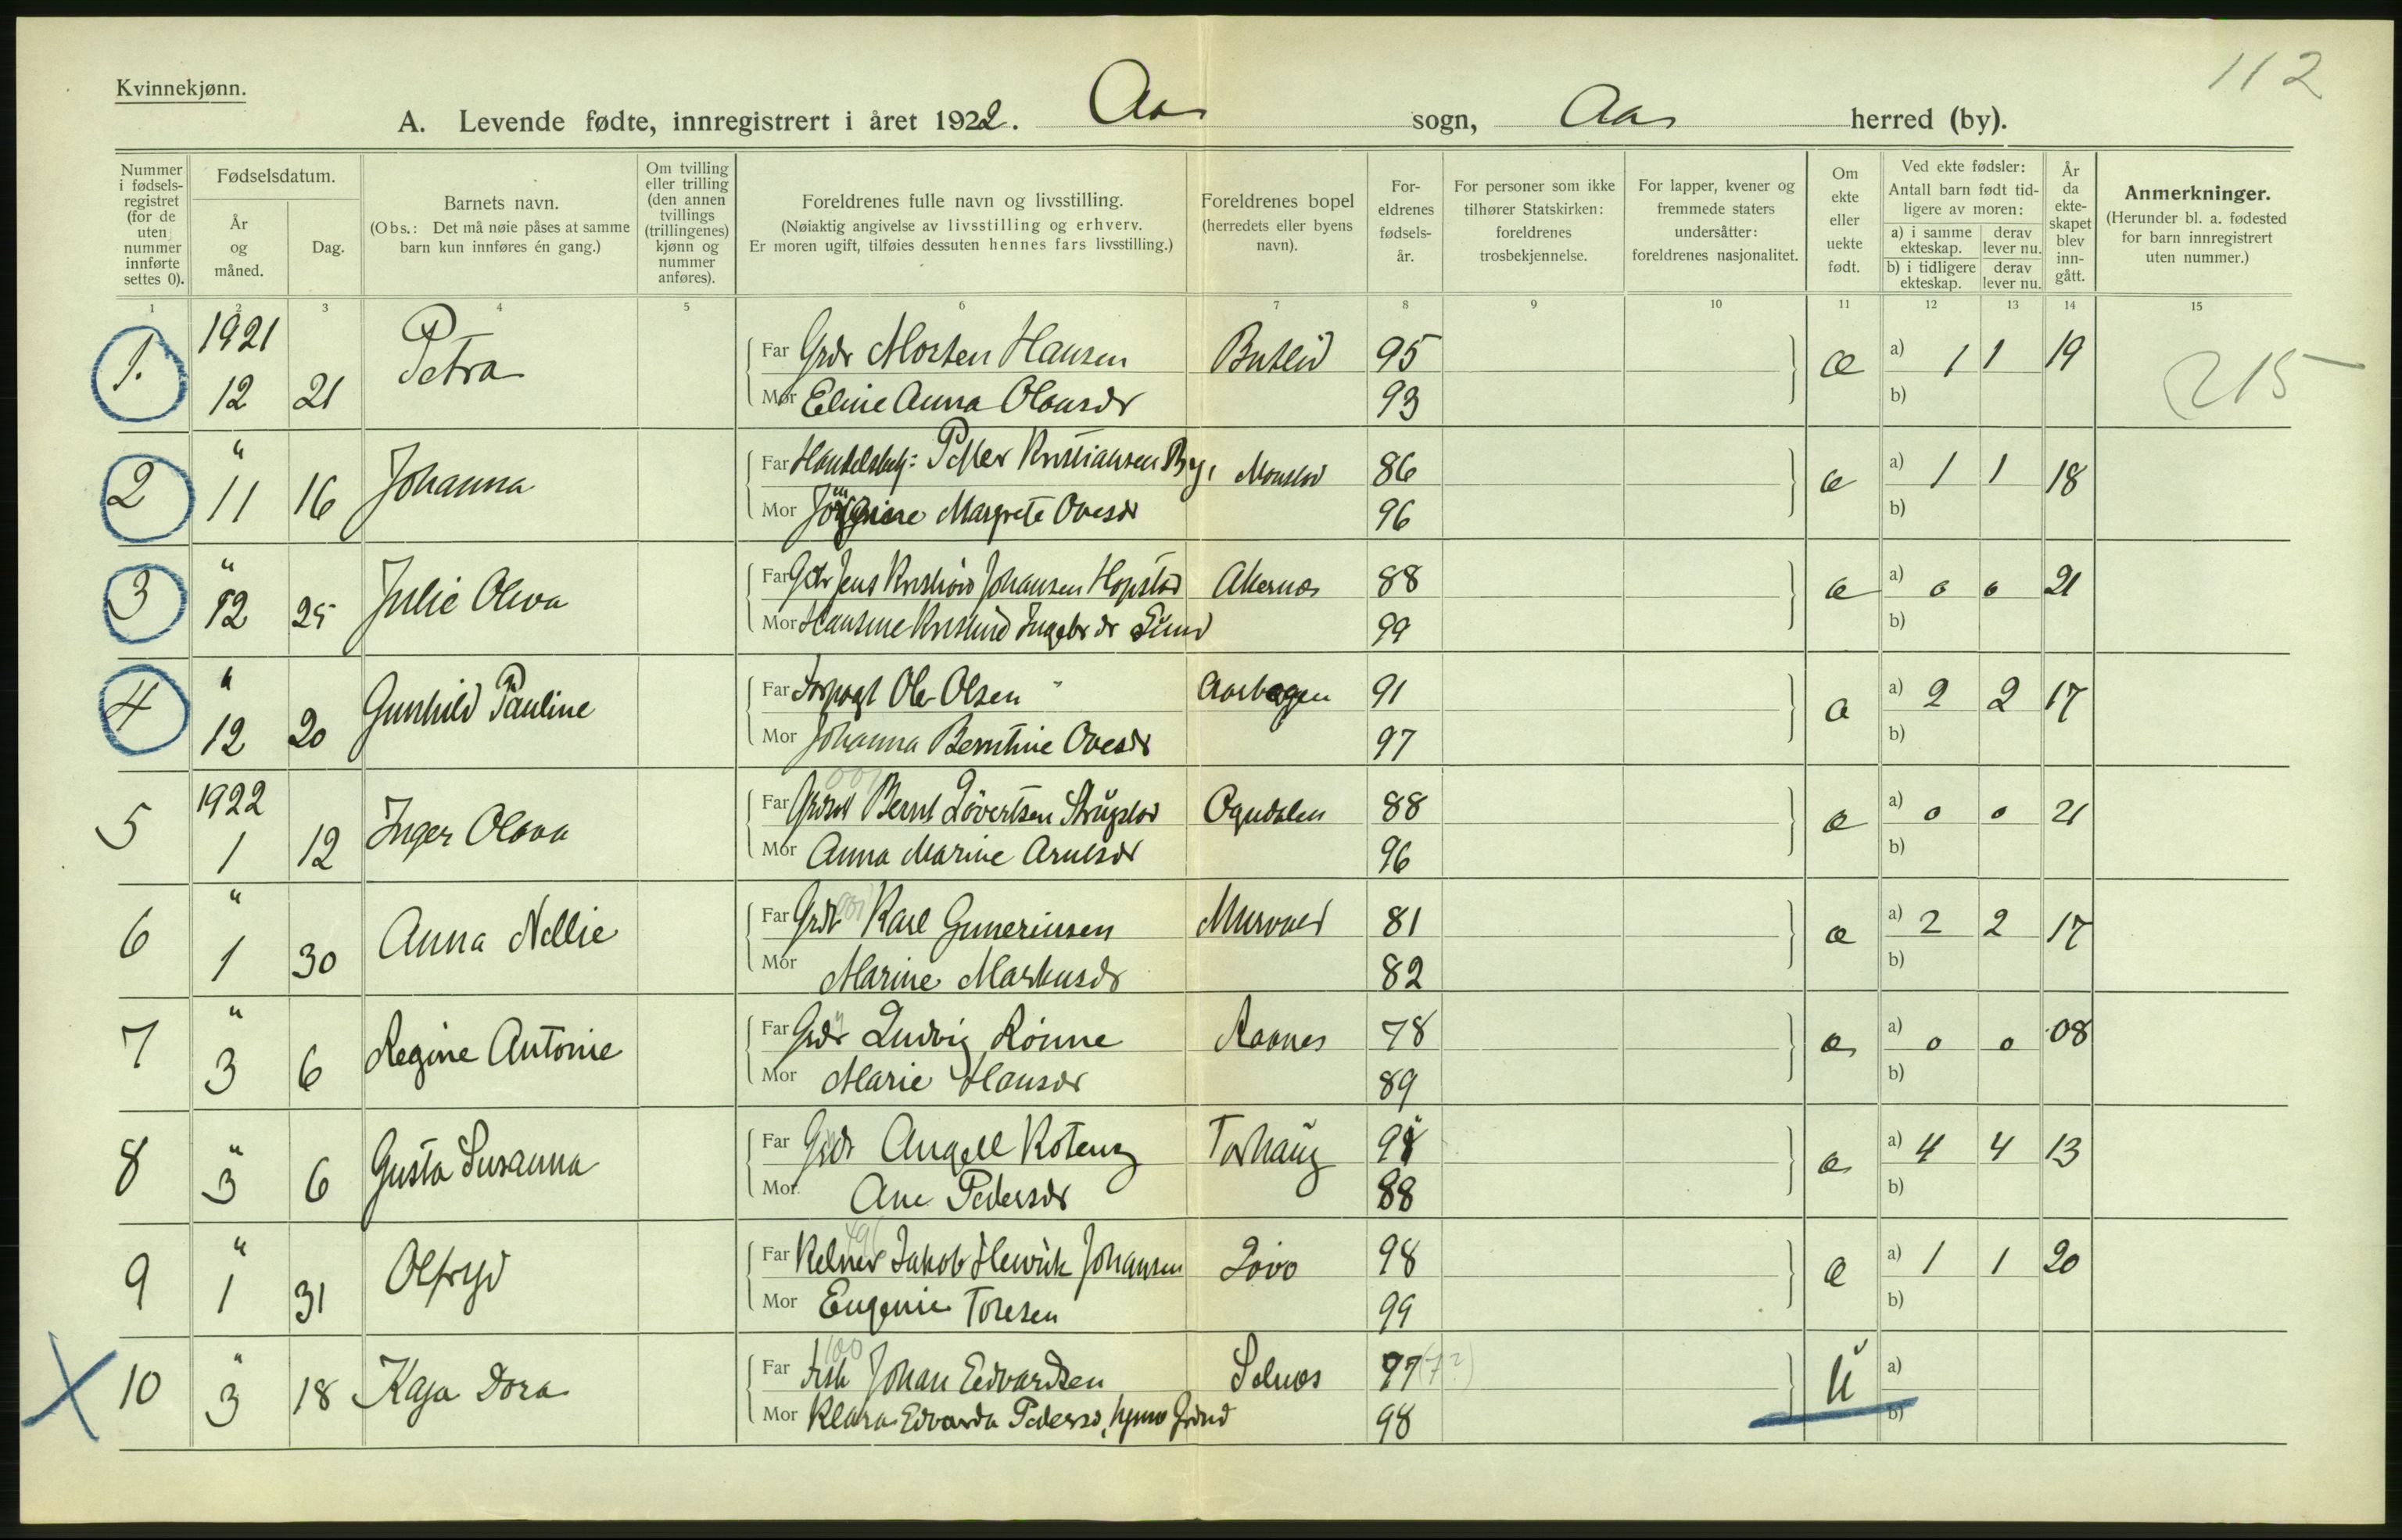 112
Kvinnekjønn.
A. Levende fødte, innregistrert i året 1922. Aas sogn, Aas herred (by).
Nummer i fødsels-registret (for de uten nummer innførte settes 0).
Fødselsdatum.
År og måned.
Dag.
Barnets navn.
(Obs.: Det må nøie påses at samme barn kun innføres én gang.)
Om tvilling eller trilling (den annen tvillings (trillingenes) kjønn og nummer anføres).
Foreldrenes fulle navn og livsstilling.
(Nøiaktig angivelse av livsstilling og erhverv.
Er moren ugift, tilføies dessuten hennes fars livsstilling.)
Foreldrenes bopel (herredets eller byens navn).
For-eldrenes fødsels-år.
For personer som ikke tilhører Statskirken: foreldrenes trosbekjennelse.
For lapper, kvener og fremmede staters undersåtter: foreldrenes nasjonalitet.
Om ekte eller uekte født.
Ved ekte fødsler:
Antall barn født tid-ligere av moren:
a) i samme ekteskap. derav lever nu.
b) i tidligere ekteskap. derav lever nu.
År da ekte-skapet blev inn-gått.
Anmerkninger.
(Herunder bl. a. fødested for barn innregistrert uten nummer.)
1 2 3 4 5 6 7 8 9 10 11 12 13 14 15
1. 1921 12 21 Petra Far Grdr Morten Hansen 95 æ a) 1 1 19 215
Mor Eline Anna Olausdr 93 b)
2 " 11 16 Johanna Far Petter Kristiansen By, 86 æ a) 1 1 18
Mor Margrete Ovesdr 96 b)
3 " 12 25 Julie Oleva Far Jens Johansen Hopstad Akernæs 88 æ a) 0 0 21
Mor Hansine 99 b)
4 " 12 20 Gunhild Pauline Far Forpagt Ole Olsen 91 æ a) 2 2 17
Mor Johanna Berntine Ovesdr 97 b)
5 1922 1 12 Inger Olava Far Bernt Ogndalen 88 æ a) 0 0 21
Mor Anna Marine 96 b)
6 " 1 30 Anna Nellie Far Grdr Karl Guneriussen 81 æ a) 2 2 17
Mor Marine Markusdr 82 b)
7 " 3 6 Regine Antonie Far Grdr Ludvig Rönne 78 æ a) 0 0 08
Mor Marie Hansdr 89 b)
8 " 3 6 Gusta Susanna Far Grdr Angell Torhaug æ a) 4 4 13
Mor Ane Pedersdr 88 b)
9 " 1 31 Olfryd Far Jakob Henrik Johansen 98 æ a) 1 1 20
Mor Eugenie Toresen 99 b)
10 " 3 18 Kaja Dora Far Fisk Johan Edvardsen Selnæs 97 (7?) U a)
Mor Klara Edvarda 98 b)